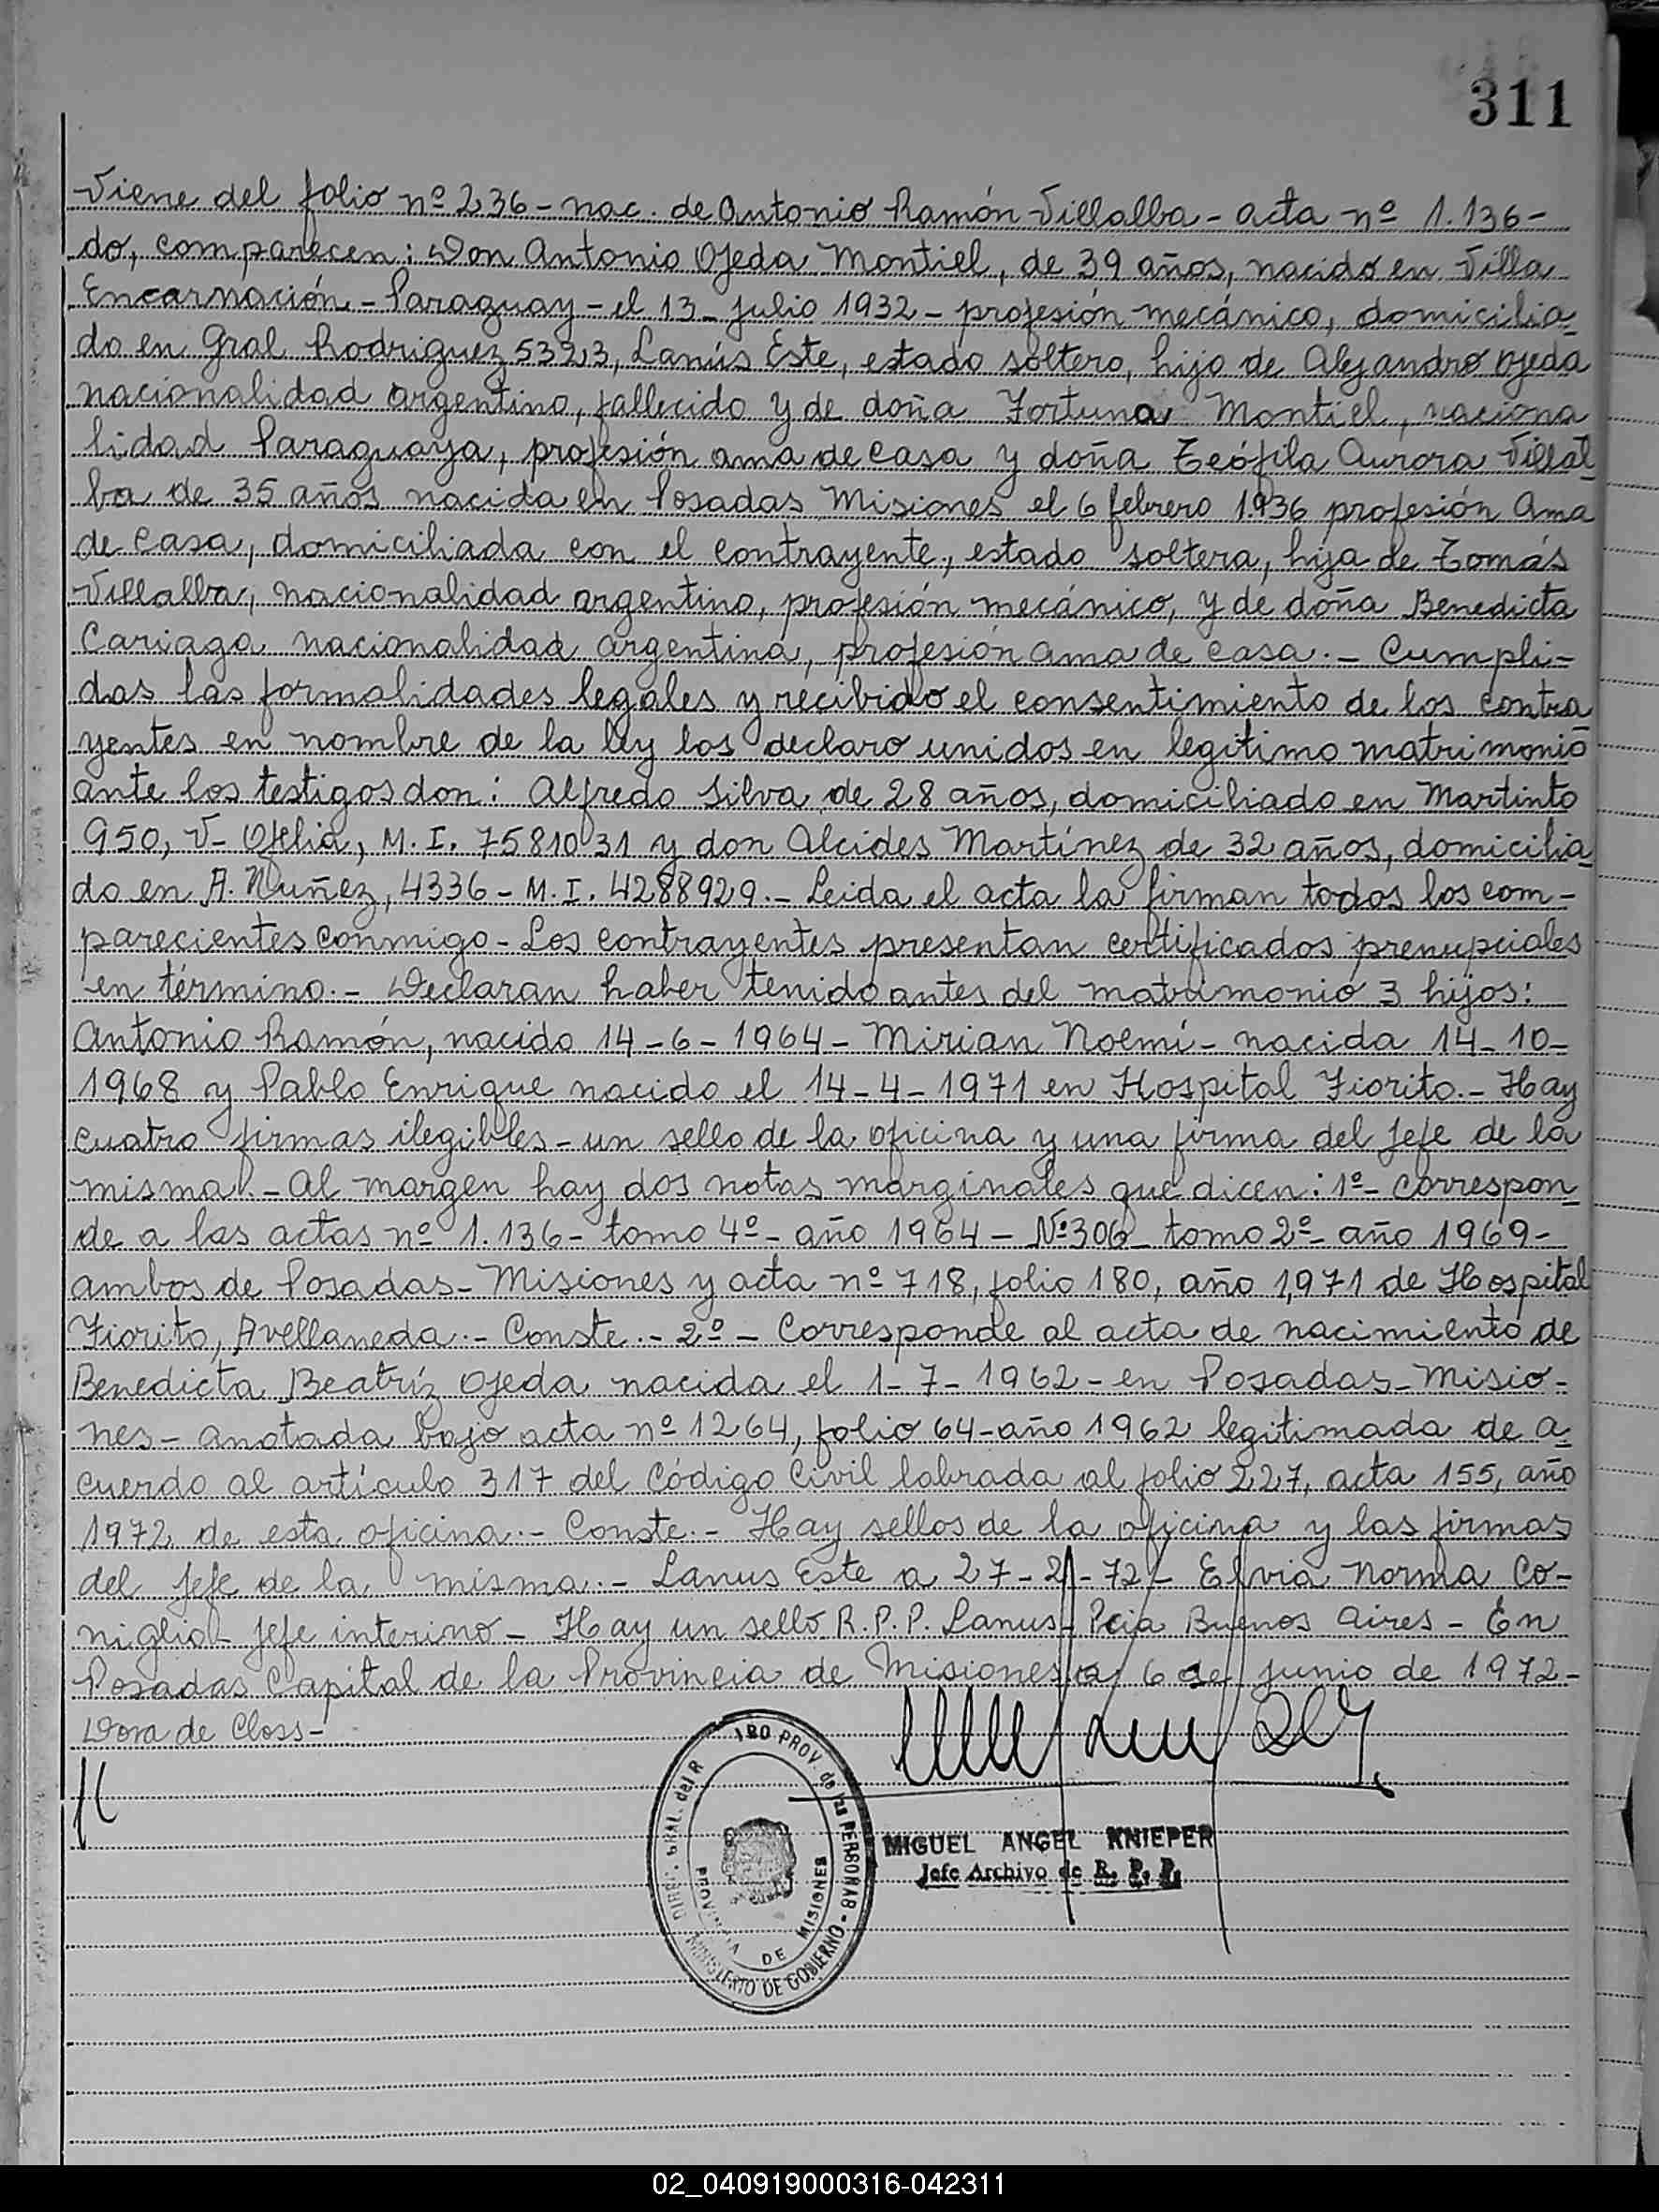 311
Viene del folio nº 236 - nac. de Antonio Ramón Villalba - acta nº 1.136 -
do, comparecen: Don Antonio Ojeda Montiel, de 39 años, nacido en Villa
Encarnación - Paraguay - el 13 - julio 1932 - profesión mecánico, domicilia
do en Gral Rodriguez 5323, Lanús Este, estado soltero, hijo de Alejandro Ojeda
nacionalidad argentino, fallecido y de doña Fortuna Montiel, naciona
lidad Paraguaya, profesión ama de casa y doña Teófila Aurora Villal
ba de 35 años nacida en Posadas Misiones el 6 febrero 1936 profesión Ama
de casa, domiciliada con el contrayente, estado soltera, hija de Tomás
Villalba, nacionalidad argentino, profesión mecánico, y de doña Benedicta
Cariaga nacionalidad argentina, profesión ama de casa. - Cumpli-
das las formalidades legales y recibido el consentimiento de los contra
yentes en nombre de la ley los declaro unidos en legítimo matrimonio
ante los testigos don: Alfredo Silva de 28 años, domiciliado en Martinto
950, V- Ofelia, M. I. 7581031 y don Alcides Martínez de 32 años, domicilia
do en A. Nuñez, 4336 - M. I. 4288929. - Leida el acta la firman todos los com-
parecientes conmigo - Los contrayentes presentan certificados prenupciales
en término. - Declaran haber tenido antes del matrimonio 3 hijos:
Antonio Ramón, nacido 14 - 6 - 1964 - Mirian Noemí - nacida 14 - 10 -
1968 y Pablo Enrique nacido el 14 - 4 - 1971 en Hospital Fiorito. - Hay
cuatro firmas ilegibles - un sello de la oficina y una firma del Jefe de la
misma. - Al margen hay dos notas marginales que dicen: 1º - Correspon
de a las actas nº 1.136 - tomo 4º - año 1964 - Nº 306 - tomo 2º - año 1969 -
ambos de Posadas - Misiones y acta nº 718, folio 180, año 1,971 de Hospital
Fiorito, Avellaneda. - Conste. - 2º - Corresponde al acta de nacimiento de
Benedicta Beatríz Ojeda nacida el 1 - 7 - 1962 - en Posadas - Misio-
nes - anotada bajo acta nº 1264, folio 64 - año 1962 legitimada de a
cuerdo al artículo 317 del Código Civil labrada al folio 227, acta 155, año
1972 de esta oficina. - Conste. - Hay sellos de la oficina y las firmas
del Jefe de la misma. - Lanus Este a 27 - 2 - 72 - Elvia Norma Co-
niglio - Jefe interino - Hay un sello R. P. P. Lanus - Pcia Buenos Aires - En
Posadas Capital de la Provincia de Misiones a 6 de junio de 1972 -
Dora de Closs -
MIGUEL ANGEL KNIEPER
Jefe Archivo de R. P. P.
PROV. de las PERSONAS - MINISTERIO DE GOBIERNO
PROVINCIA DE MISIONES
02_040919000316-042311